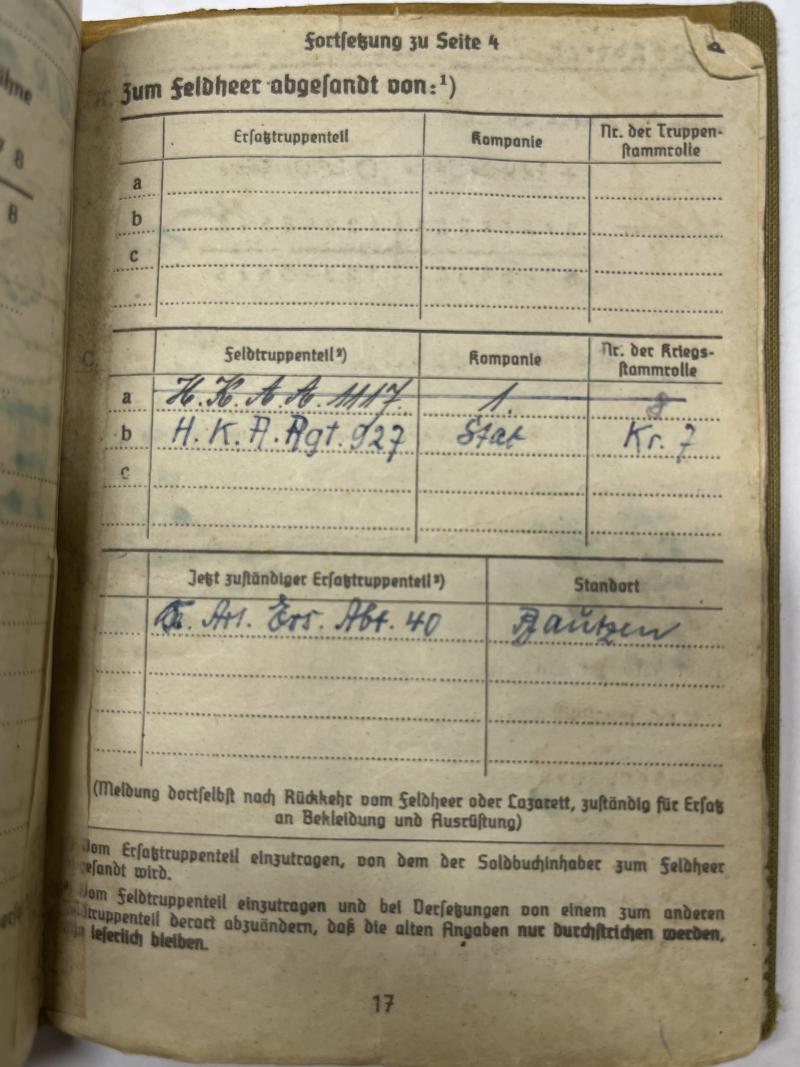 Fortsetzung zu Seite 4
Zum Feldheer abgesandt von:¹)
Ersatztruppenteil Kompanie Nr. der Truppen-
stammrolle
a
b
c
C.
Feldtruppenteil²) Kompanie Nr. der Kriegs-
stammrolle
a H. K. A. A. 1117. 1. 8
b H. K. A. Rgt. 927 Stab Kr. 7
c
Jetzt zuständiger Ersatztruppenteil³) Standort
Art. Ers. Abt. 40 Bautzen
(Meldung dortselbst nach Rückkehr vom Feldheer oder Lazarett, zuständig für Ersatz
an Bekleidung und Ausrüstung)
Vom Ersatztruppenteil einzutragen, von dem der Soldbuchinhaber zum Feldheer
gesandt wird.
Vom Feldtruppenteil einzutragen und bei Versetzungen von einem zum anderen
truppenteil derart abzuändern, daß die alten Angaben nur durchstrichen werden,
leserlich bleiben.
17